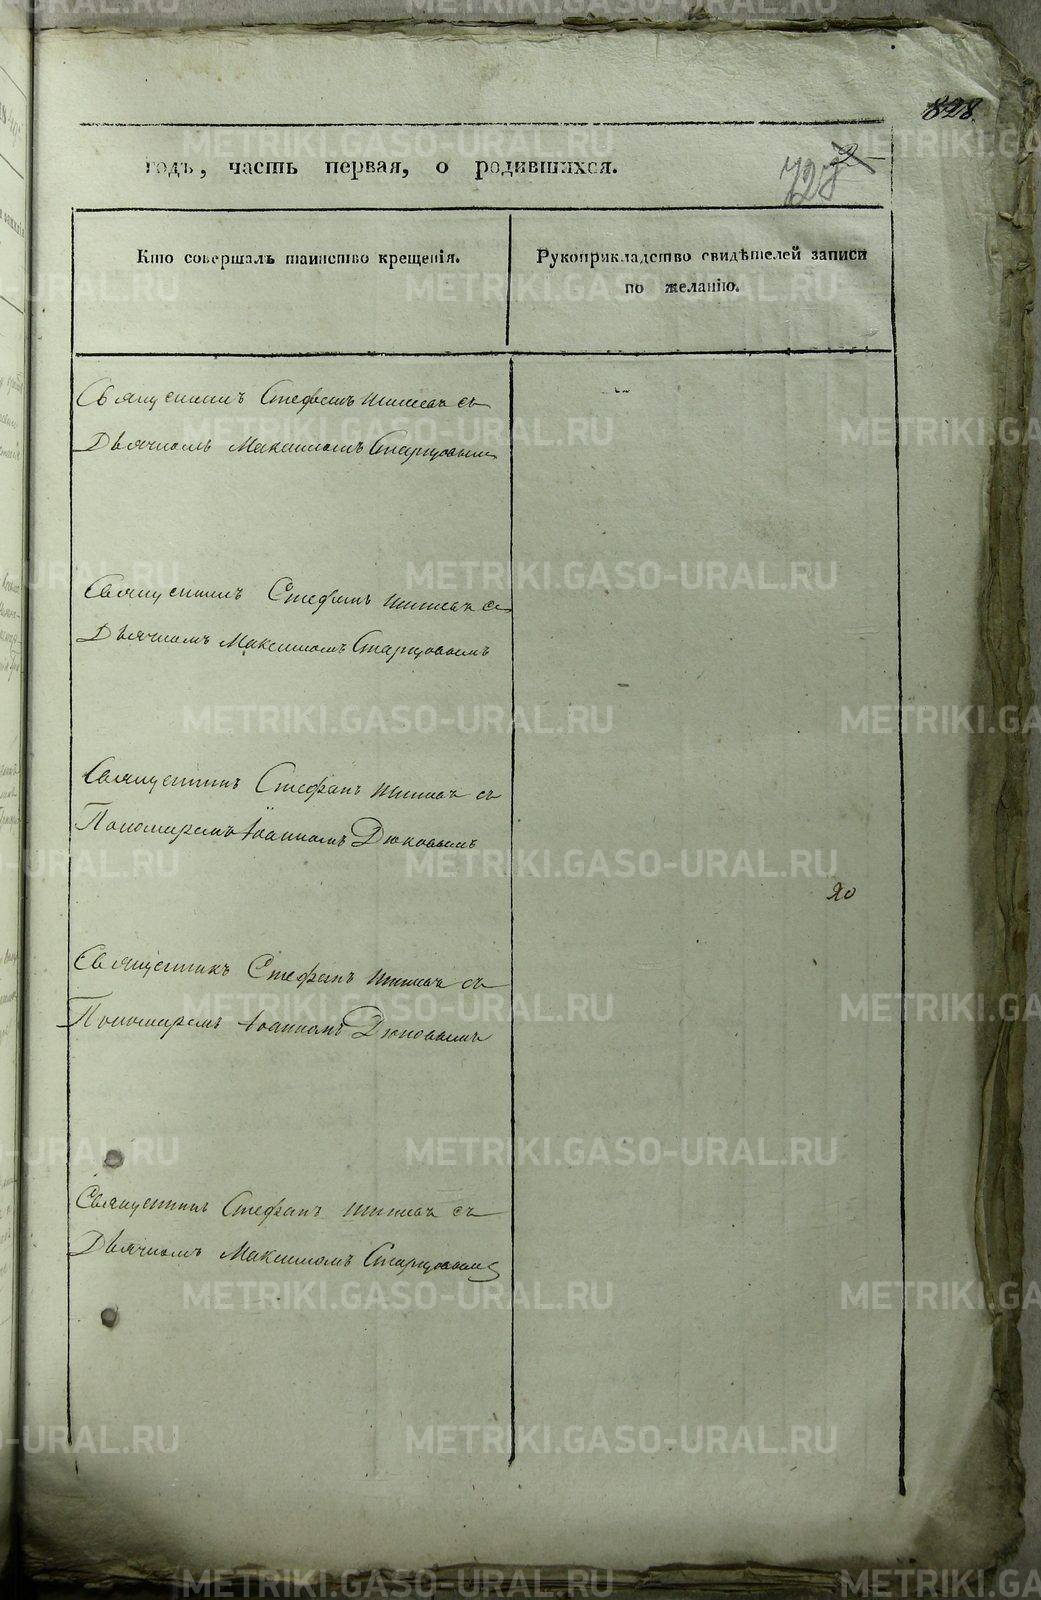 828
годъ, часть первая, о родившихся.
727
Кто совершалъ таинство крещенія.
Рукоприкладство свидѣтелей записи
по желанію.
Священникъ Стефанъ съ
Дьячкомъ Максимомъ Старцовымъ
Священникъ Стефанъ съ
Дьячкомъ Максимомъ Старцовымъ
Священникъ Стефанъ съ
Пономаремъ Іоанномъ Дюковымъ
20
Священникъ Стефанъ съ
Пономаремъ Іоанномъ Дюковымъ
Священникъ Стефанъ съ
Дьячкомъ Максимомъ Старцовымъ
METRIKI.GASO-URAL.RU